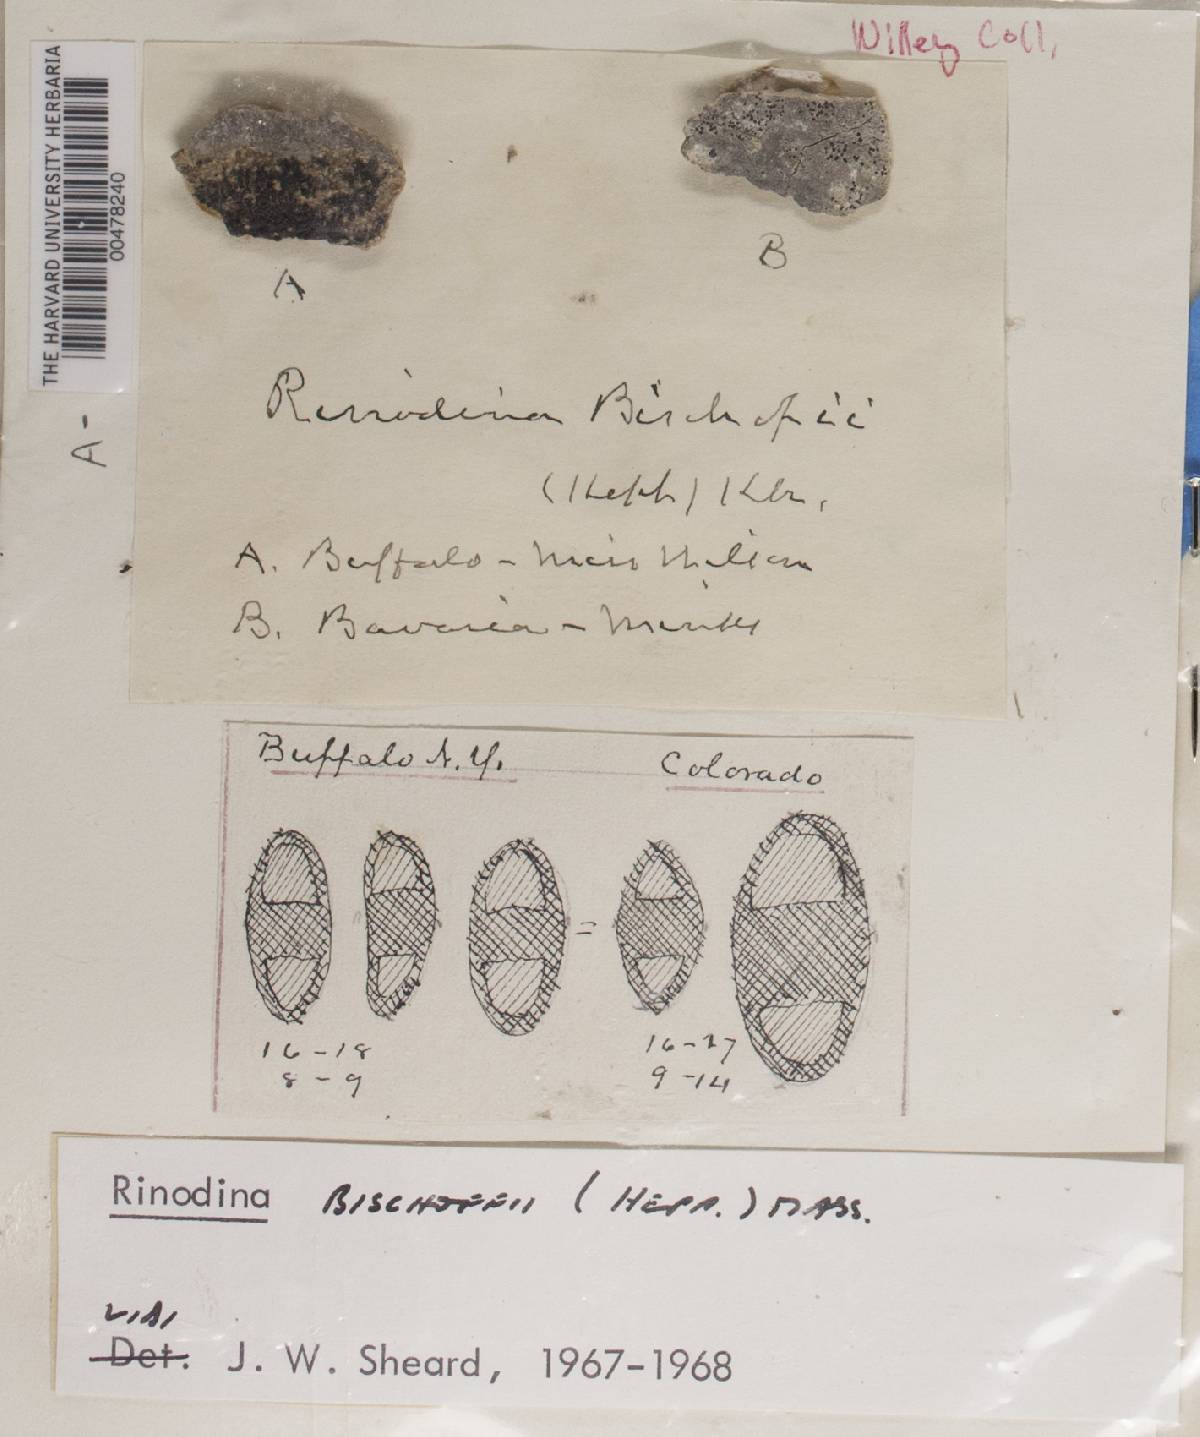 Willey Coll.
THE HARVARD UNIVERSITY HERBARIA
00478240
A B
A-
Rinodina Bischofii
(Heph) Kbr.
A. Buffalo - Miss Wilson
B. Bavaria -
Buffalo N.Y. Colorado
=
16-18 16-27
8-9 9-14
Rinodina BISCHOFFII (HEPP.) MASS.
VIDI
Det. J. W. Sheard, 1967-1968